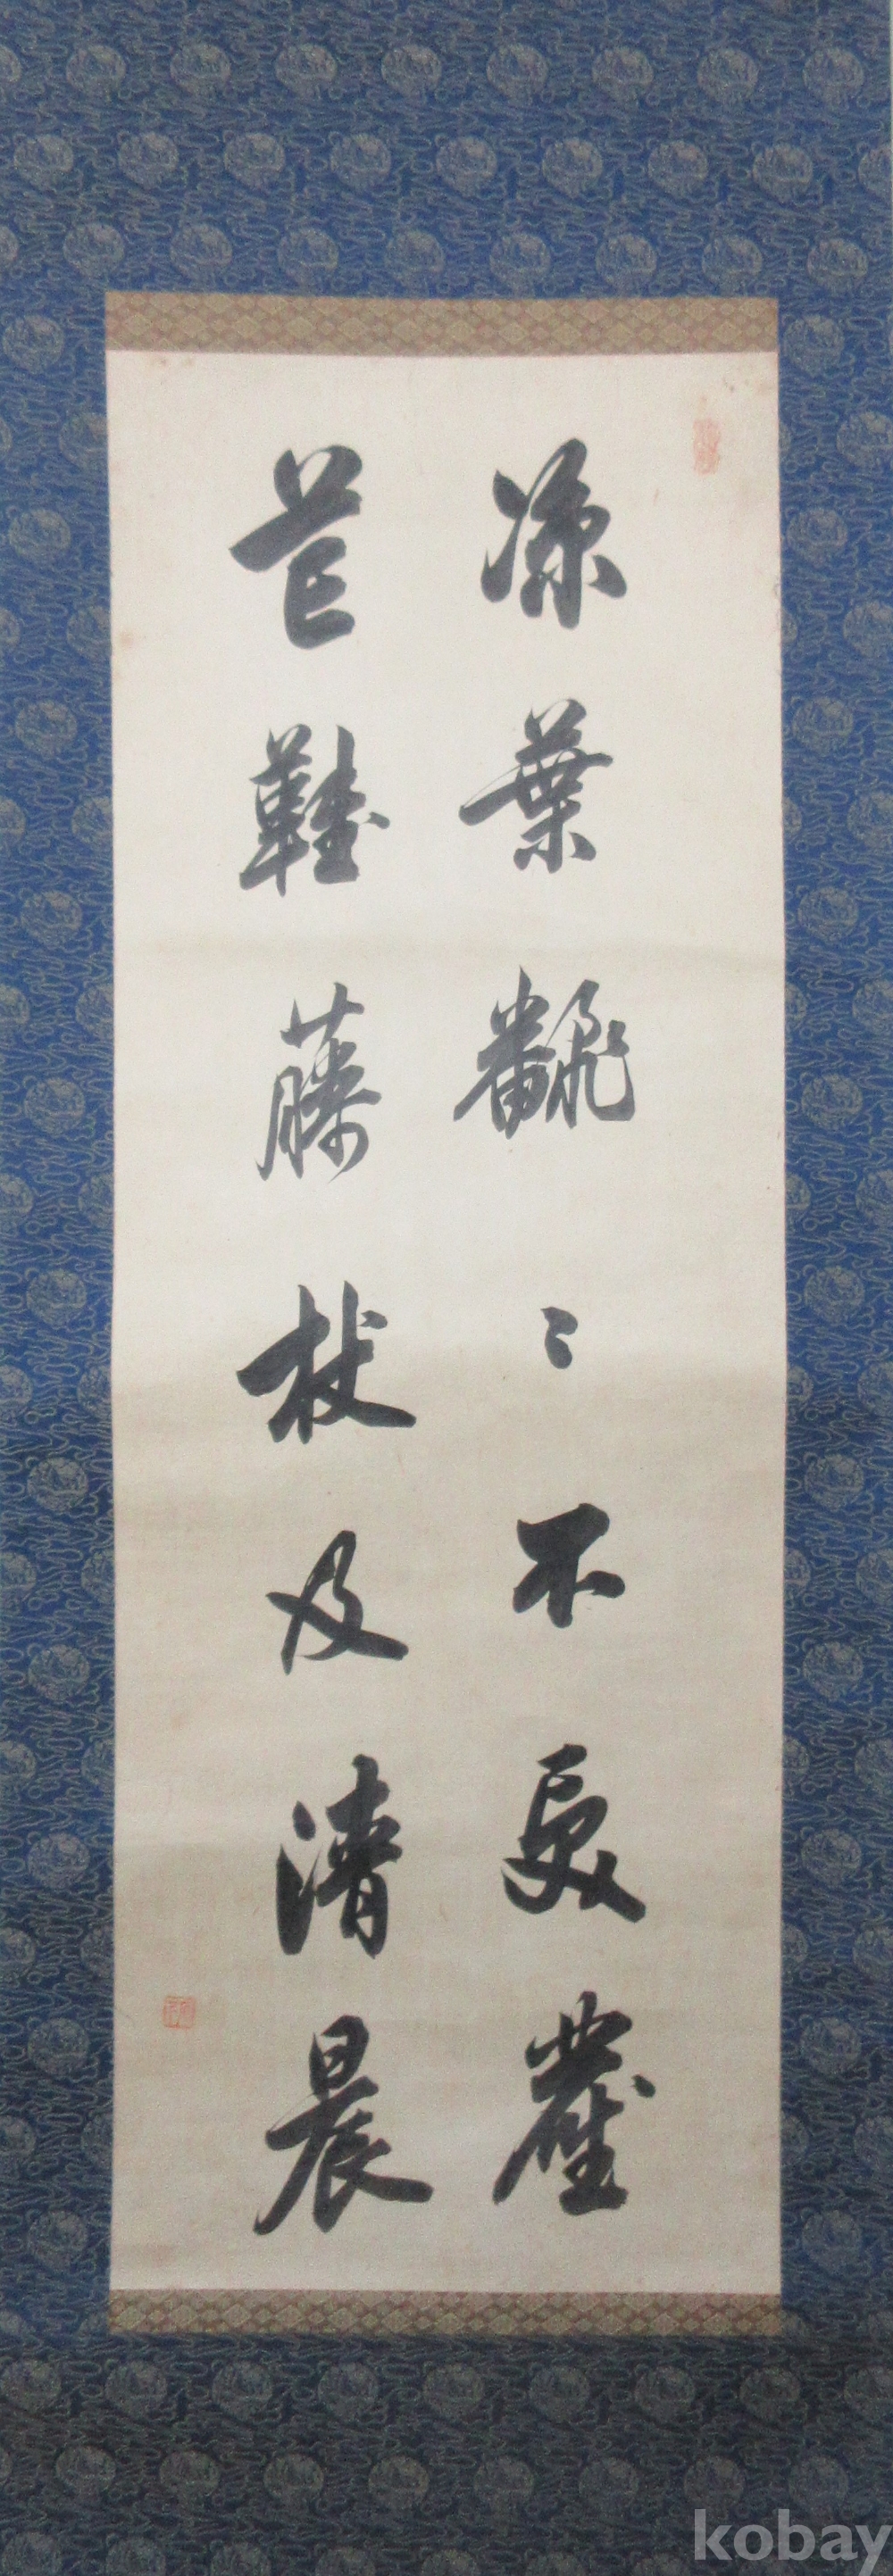 凉葉飜々不受塵
芒鞋藤杖及清晨
kobay